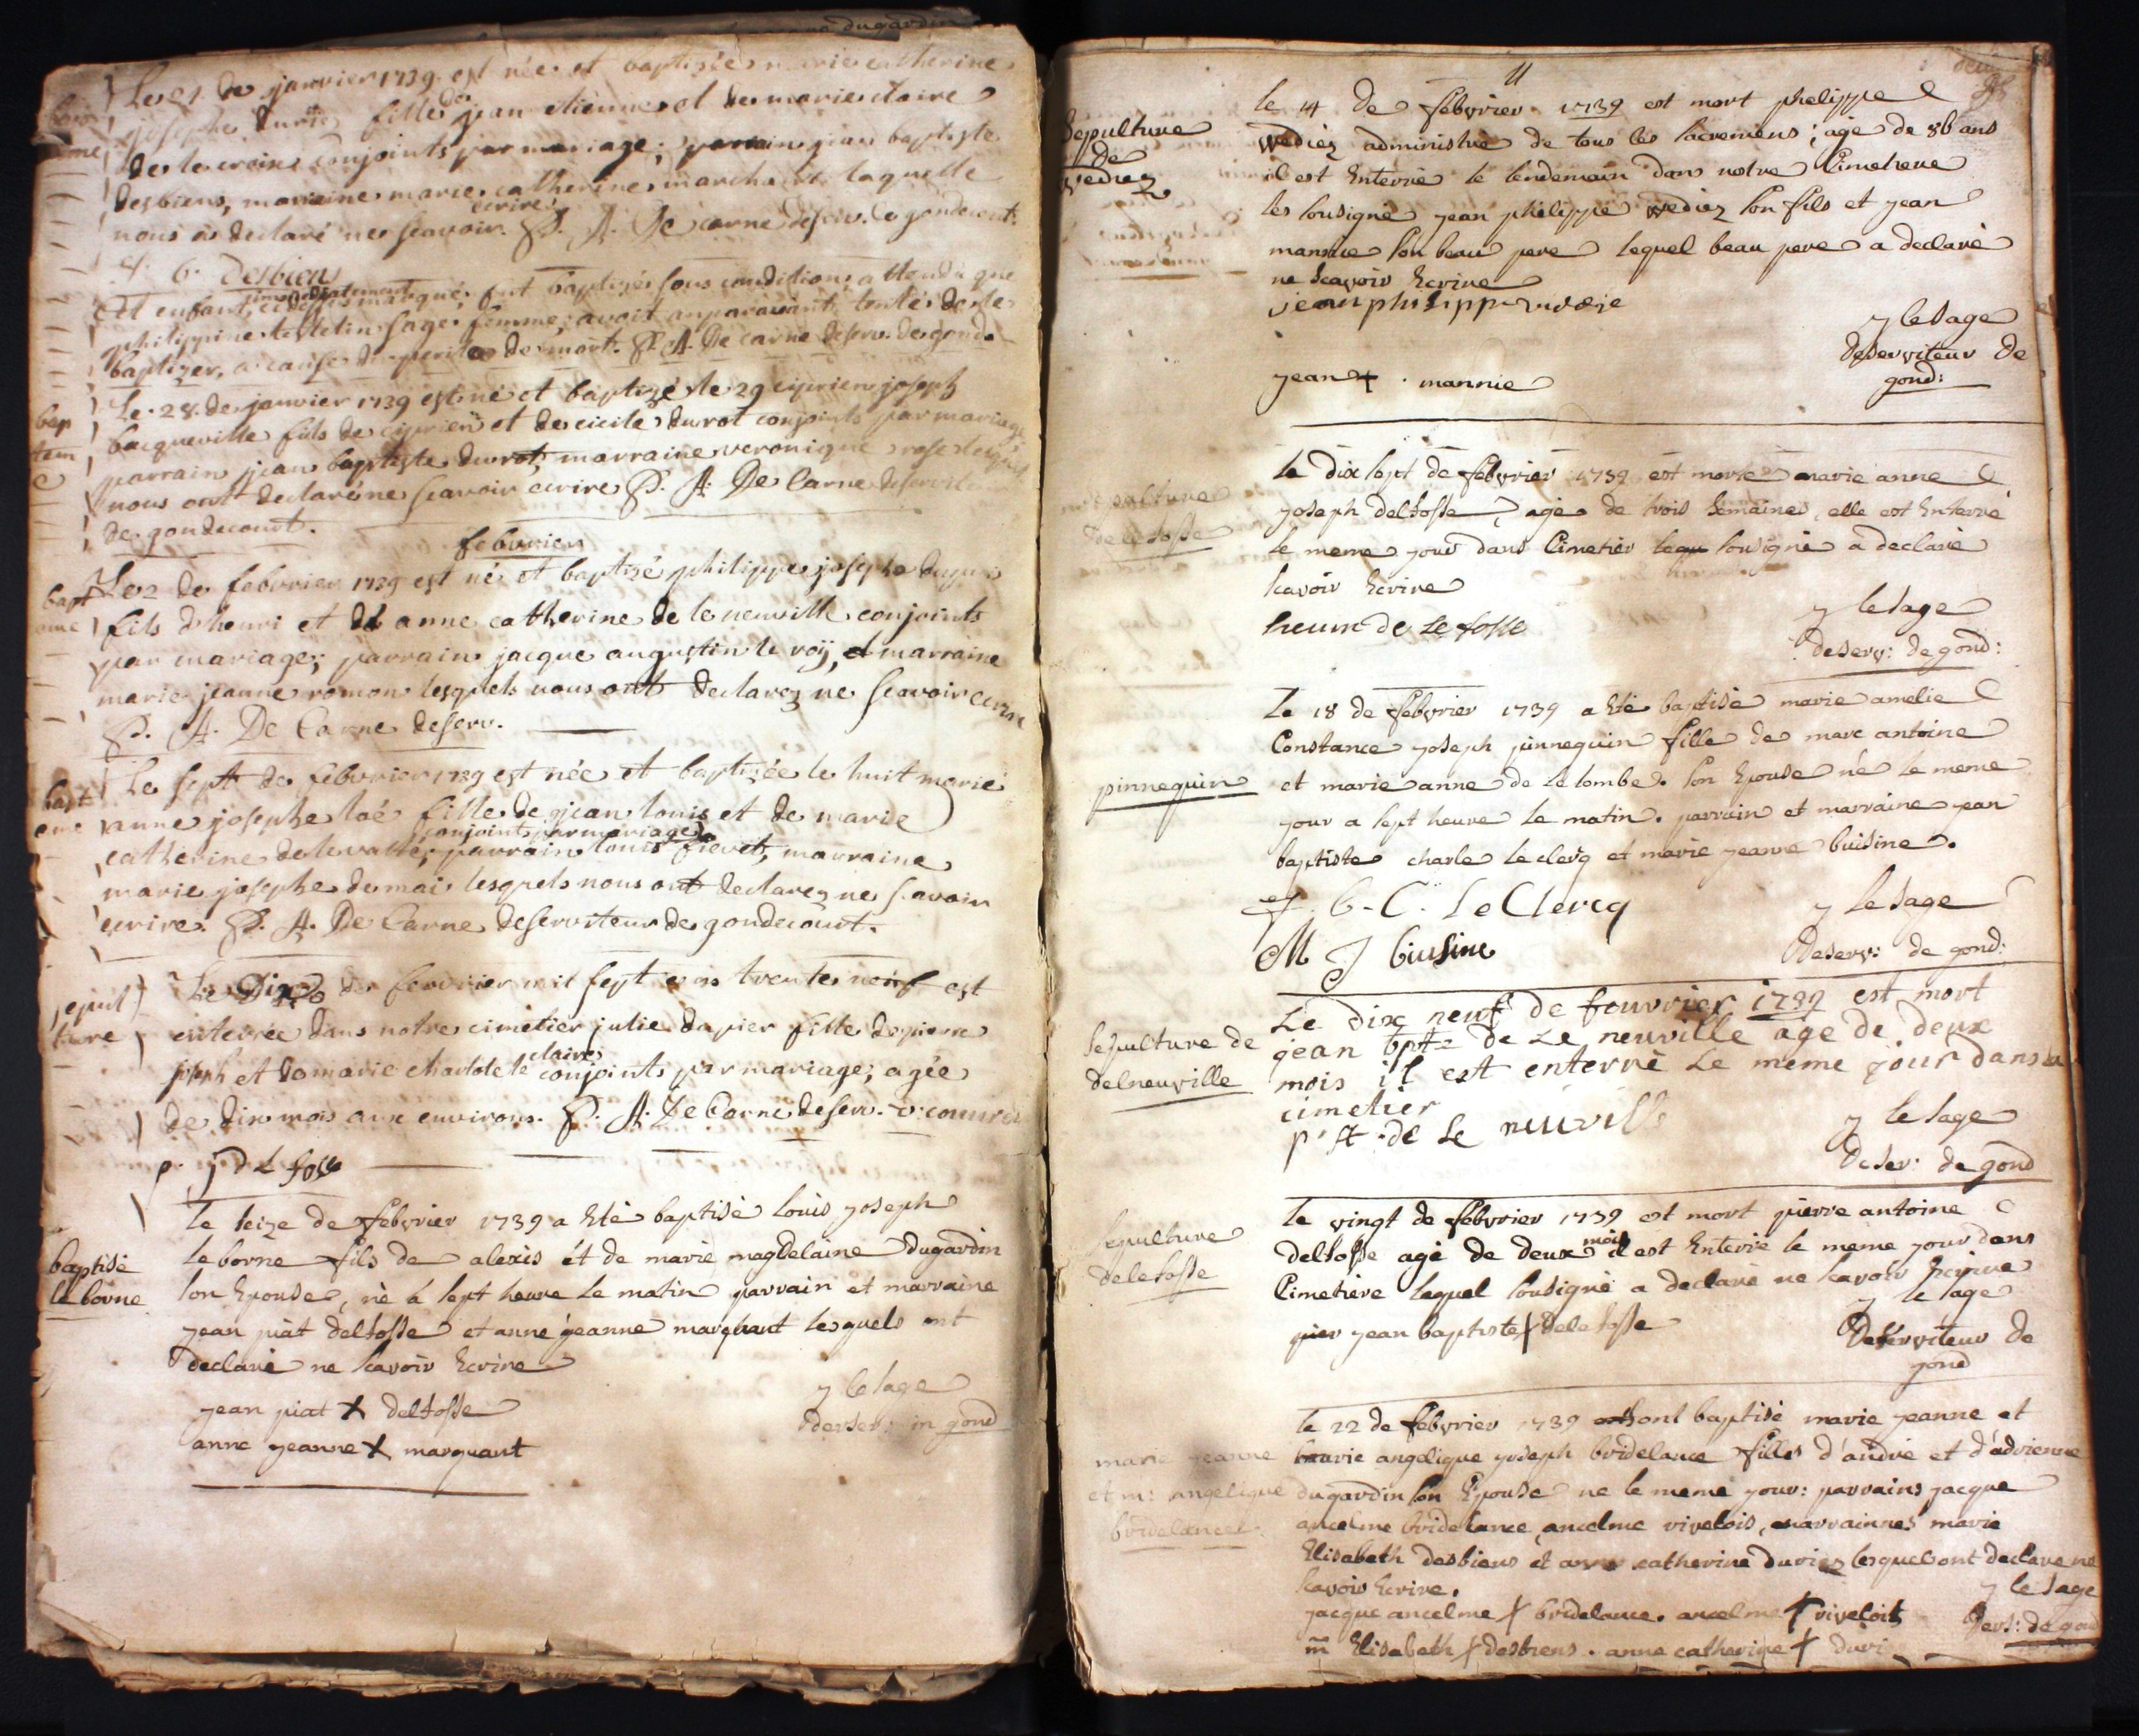 Le 21 de janvier 1739 est née et baptizée marie catherine
josephe durié fille de jean etienne et de marie claire
de le croix conjoints par mariage; parain jean baptiste
desbiens, maraine marie catherine laquelle
nous a declaré ne scavoir ecrire. P. A. De Carne deserv. de gondecourt.
j. b. desbien
cet enfant, ci dessus immediatement marqué, fut baptizé sous condition, attendu que
philippine sage femme, avoit auparavant tenté de le
baptizer, a cause de peril de mort. P. A. De Carne deserv. de gond.
bap
tem
e
Le 28 de janvier 1739 est né et baptizé le 29 ciprien joseph
bacqueville fils de ciprien et de cicile durot conjoints par mariage
parrain jean baptiste durot, marraine veronique rose
nous ont declaré ne scavoir ecrire P. A. De Carne
de gondecourt.
febvrier
bapt
eme
Le 2 de febvrier 1739 est né et baptizé philippe josephe
fils d'henri et de anne catherine de le neuville conjoints
par mariage; parrain jacque augustin le roÿ, et marraine
marie jeanne romon lesquels nous ont declarez ne scavoir ecrire
P. A. De Carne deserv.
bapt
eme
Le sept de febvrier 1739 est née et baptizée le huit marie
anne josephe loé fille de jean louis et de marie
catherine delevallé, conjoints par mariage parrain louis fievet, marraine
marie josephe demai lesquels nous ont declarez ne scavoir
ecrire. P. A. De Carne deserviteur de gondecourt.
sepul
ture
Le Dix de fevrier mil sept cens trente neuf est
enterrée dans notre cimetier julie dapier fille de pierre
joseph et de marie charlote le claire conjoints par mariage; agée
de dix mois aux environs. P. A. De Carne deserv.
p. j d L fosse
baptisé
leborne
le seize de febvrier 1739 a eté baptisé louis joseph
leborne fils de alexis et de marie magdelaine dugardin
son epouse, né à sept heure le matin parrain et marraine
jean piat delfosse et anne jeanne marquant lesquels ont
declaré ne scavoir ecrire
jean piat X delfosse
anne jeanne X marquant
y le sage
deser: in gond
11
Sepulture
de
wediez
le 14 de febvrier 1739 est mort phelippe
wediez administré de tous les sacremens; agé de 86 ans
il est enterré le lendemain dans notre Cimetiere
les sousigné jean philippe wediez son fils et jean
mannie son beau pere lequel beau pere a declaré
ne scavoir ecrire
jean philipp
jean X mannie
y le sage
deserviteur de
gond:
sepulture
delefosse
le dix sept de febvrier 1739 est morte marie anne
joseph delfosse, agé de trois semaines, elle est enterré
le meme jour dans Cimetier sousigné a declaré
scavoir ecrire
de le fosse
y le sage
deserv: de gond:
pinnequin
Le 18 de febvrier 1739 a eté baptisé marie amelie
Constance joseph pinnequin fille de marc antoine
et marie anne de le tombe. son epouse né le meme
jour a sept heure le matin. parrain et marraine jean
baptiste charle leclerq et marie jeanne buisine.
J. b. C. Le Clercq
M J buisine
y le sage
deserv: de gond:
Sepulture de
delneuville
Le dix neuf de fouvrier 1739 est mort
jean bpte de Le neuville age de deux
mois il est enterré Le meme jour dans
cimetier
p. A. de Le neuvill
y le sage
deser: de gond
sepulture
delefosse
le vingt de febvrier 1739 est mort pierre antoine
delfosse agé de deux mois il est enterré le meme jour dans
Cimetiere lequel sousigné a declaré ne scavoir ecrire
pier jean baptiste X delefosse
y le sage
deserviteur de
gond
marie jeanne
et m: angelique
bridelance
le 22 de febvrier 1739 sont baptisé marie jeanne et
marie angelique joseph bridelance filles d'andré et d'adrienne
dugardin son epouse né le meme jour: parrains jacque
ancelme bridelance, ancelme rivelois, marrainnes marie
elisabeth desbiens et anne catherine duriez lesquel ont declare ne
scavoir ecrire.
jacque ancelme X bridelance. ancelme X rivelois
m elisabeth X desbiens. anne catherine X duri
y le sage
ders: de gond